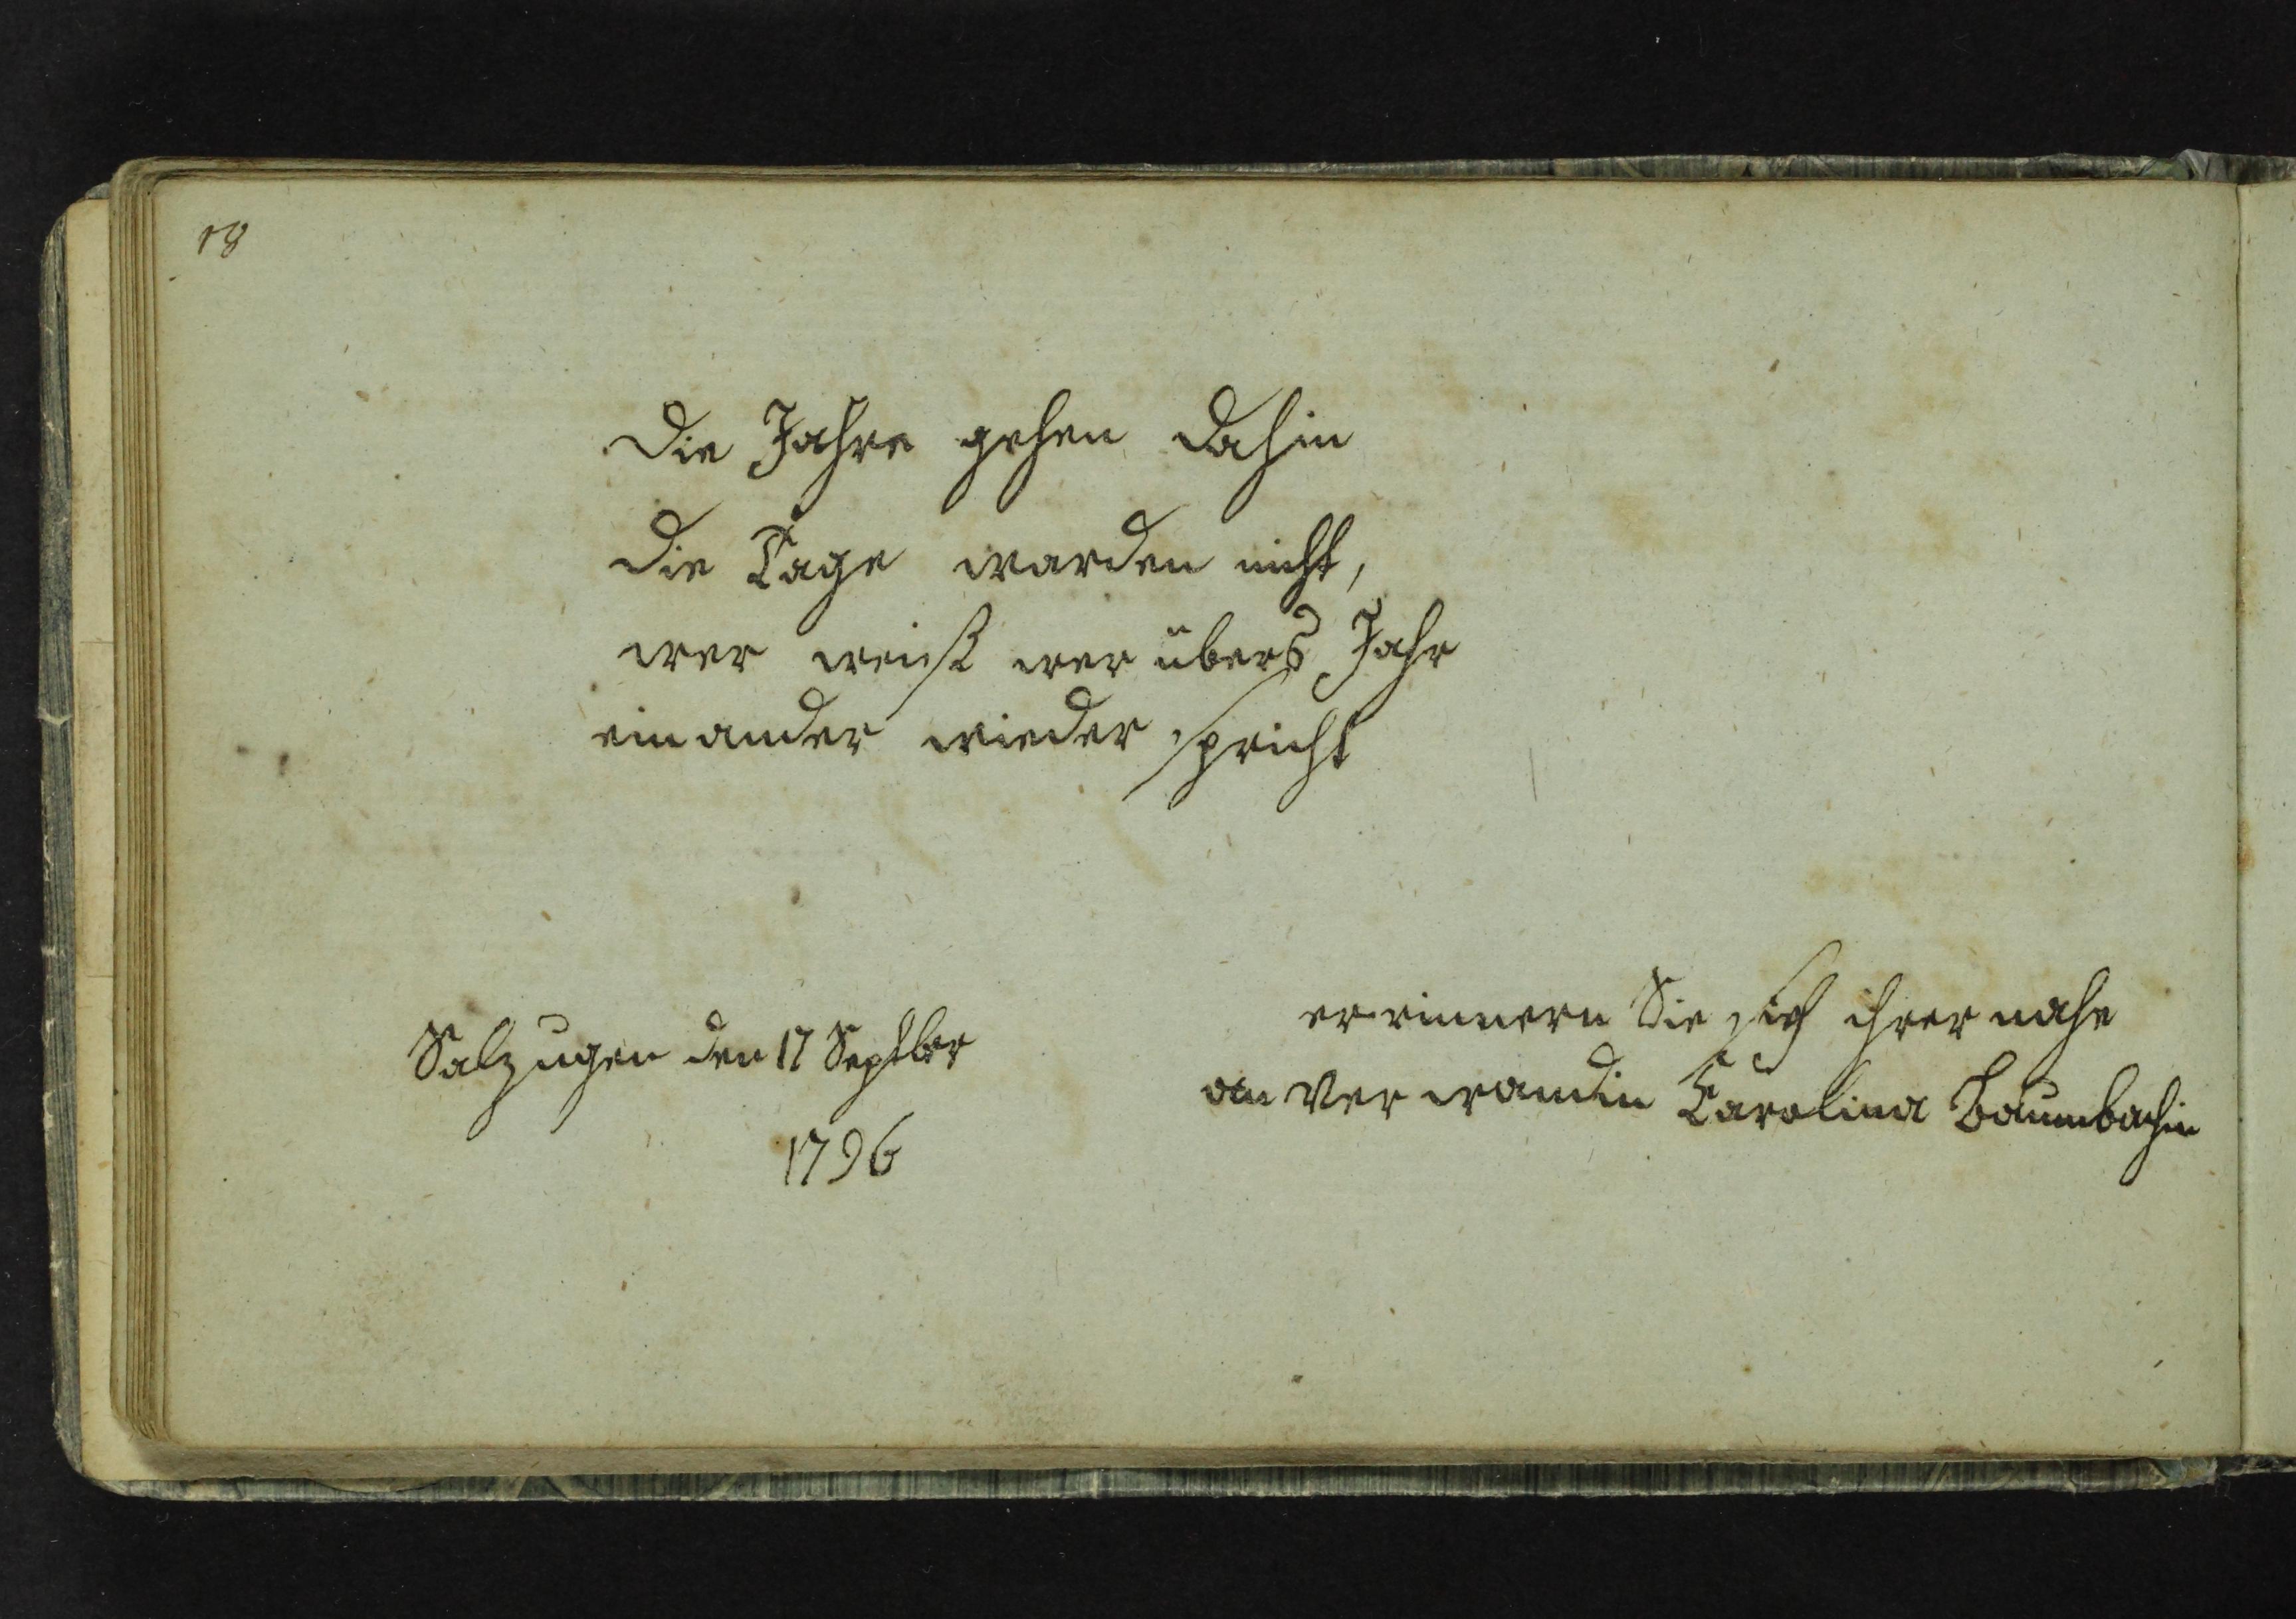 18
Die Jahre gehen dahin
die Tage warden nicht,
wer weiß wer übers Jahr
ein ander wieder spricht
Salzugen den 17 Septbr
1796
er rinnern Sie sich ihrer nahe
an Ver wandin Carolina Baumbachin